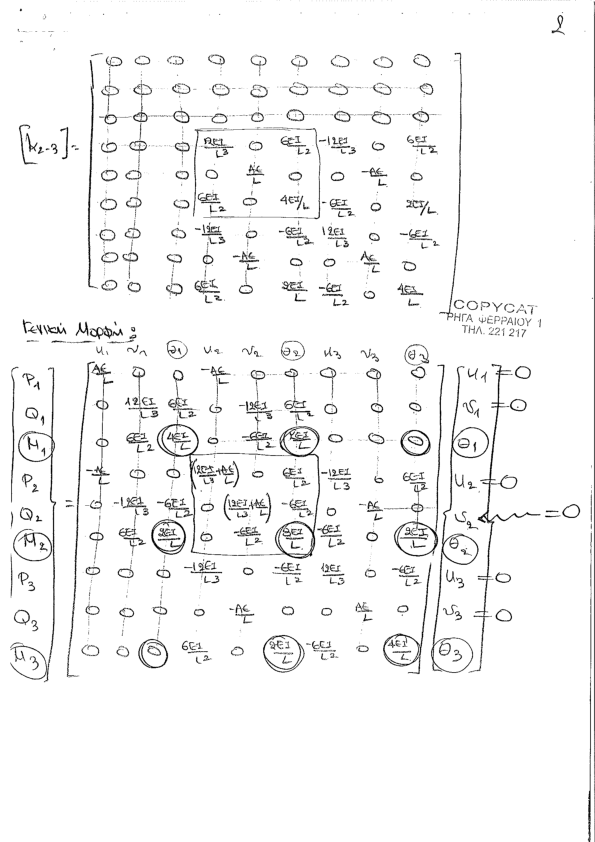 2
0 0 0 0 0 0 0 0 0
0 0 0 0 0 0 0 0 0
0 0 0 0 0 0 0 0 0
[k2-3] = 0 0 0 12EI/L3 0 6EI/L2 -12EI/L3 0 6EI/L2
0 0 0 0 AE/L 0 0 -AE/L 0
0 0 0 6EI/L2 0 4EI/L -6EI/L2 0 2EI/L
0 0 0 -12EI/L3 0 -6EI/L2 12EI/L3 0 -6EI/L2
0 0 0 0 -AE/L 0 0 AE/L 0
0 0 0 6EI/L2 0 2EI/L -6EI/L2 0 4EI/L
COPYCAT
ΡΗΓΑ ΦΕΡΡΑΙΟΥ 1
ΤΗΛ. 221 217
Γενική Μορφή:
u1 v1 θ1 u2 v2 θ2 u3 v3 θ3
P1 AE/L 0 0 -AE/L 0 0 0 0 0 u1 = 0
Q1 0 12EI/L3 6EI/L2 0 -12EI/L3 6EI/L2 0 0 0 v1 = 0
M1 0 6EI/L2 4EI/L 0 -6EI/L2 2EI/L 0 0 0 θ1
P2 -AE/L 0 0 (12EI/L3+AE/L) 0 6EI/L2 -12EI/L3 0 6EI/L2 u2 = 0
Q2 = 0 -12EI/L3 -6EI/L2 0 (12EI/L3+AE/L) -6EI/L2 0 -AE/L 0 v2 = 0
M2 0 6EI/L2 2EI/L 6EI/L2 -6EI/L2 8EI/L -6EI/L2 0 2EI/L θ2
P3 0 0 0 -12EI/L3 0 -6EI/L2 12EI/L3 0 -6EI/L2 u3 = 0
Q3 0 0 0 0 -AE/L 0 0 AE/L 0 v3 = 0
M3 0 0 0 6EI/L2 0 2EI/L -6EI/L2 0 4EI/L θ3